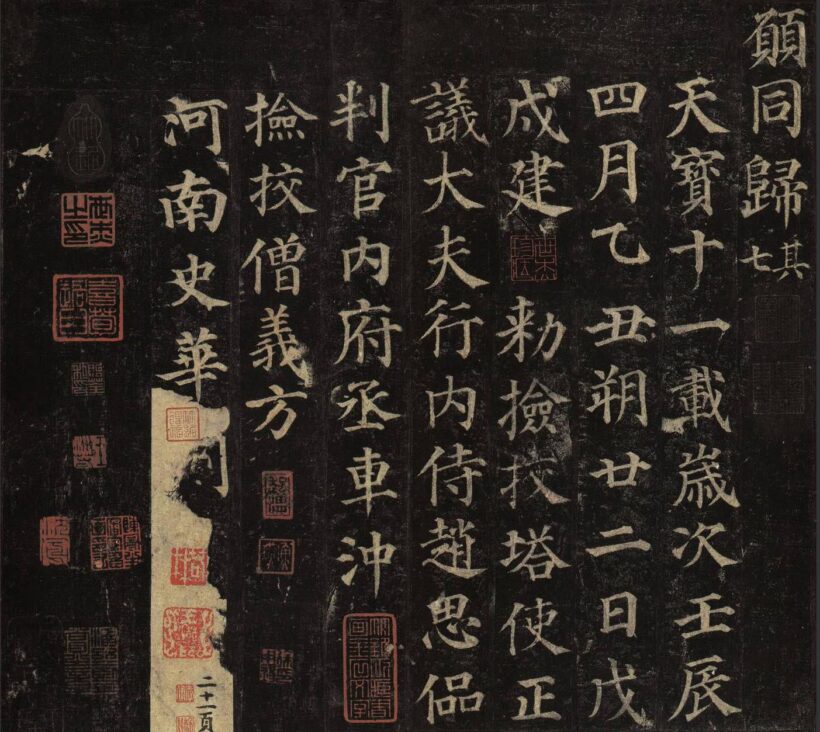 願同歸其七
天寶十一載歲次壬辰
四月乙丑朔廿二日戊
戌建 勑撿挍塔使正
議大夫行内侍趙思偘
判官内府丞車沖
撿挍僧義方
河南史華
二十一頁